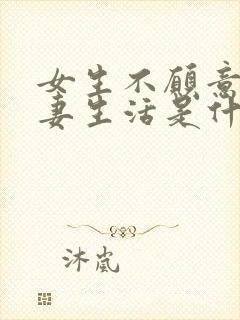 女生不愿意
妻生活是什
沐岚